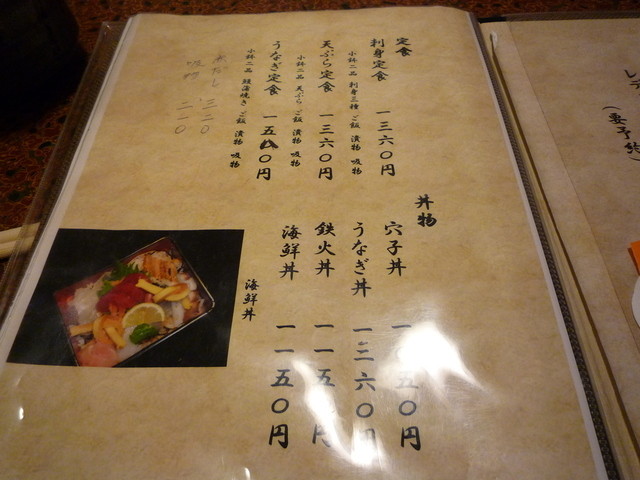 定食
刺身定食 一三六〇円
小鉢二品 刺身三種 ご飯 漬物 吸物
天ぷら定食 一三六〇円
小鉢二品 天ぷら ご飯 漬物 吸物
うなぎ定食 一五八〇円
小鉢二品 鰻蒲焼き ご飯 漬物 吸物
三二〇
吸物 二一〇
丼物
穴子丼 一〇五〇円
うなぎ丼 一三六〇円
鉄火丼 一一五〇円
海鮮丼 一一五〇円
海鮮丼
レデ
(要予約)